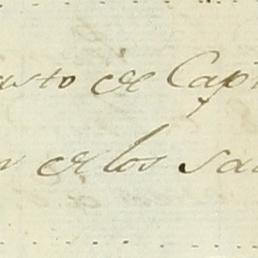 usto de Cap
n de los sa